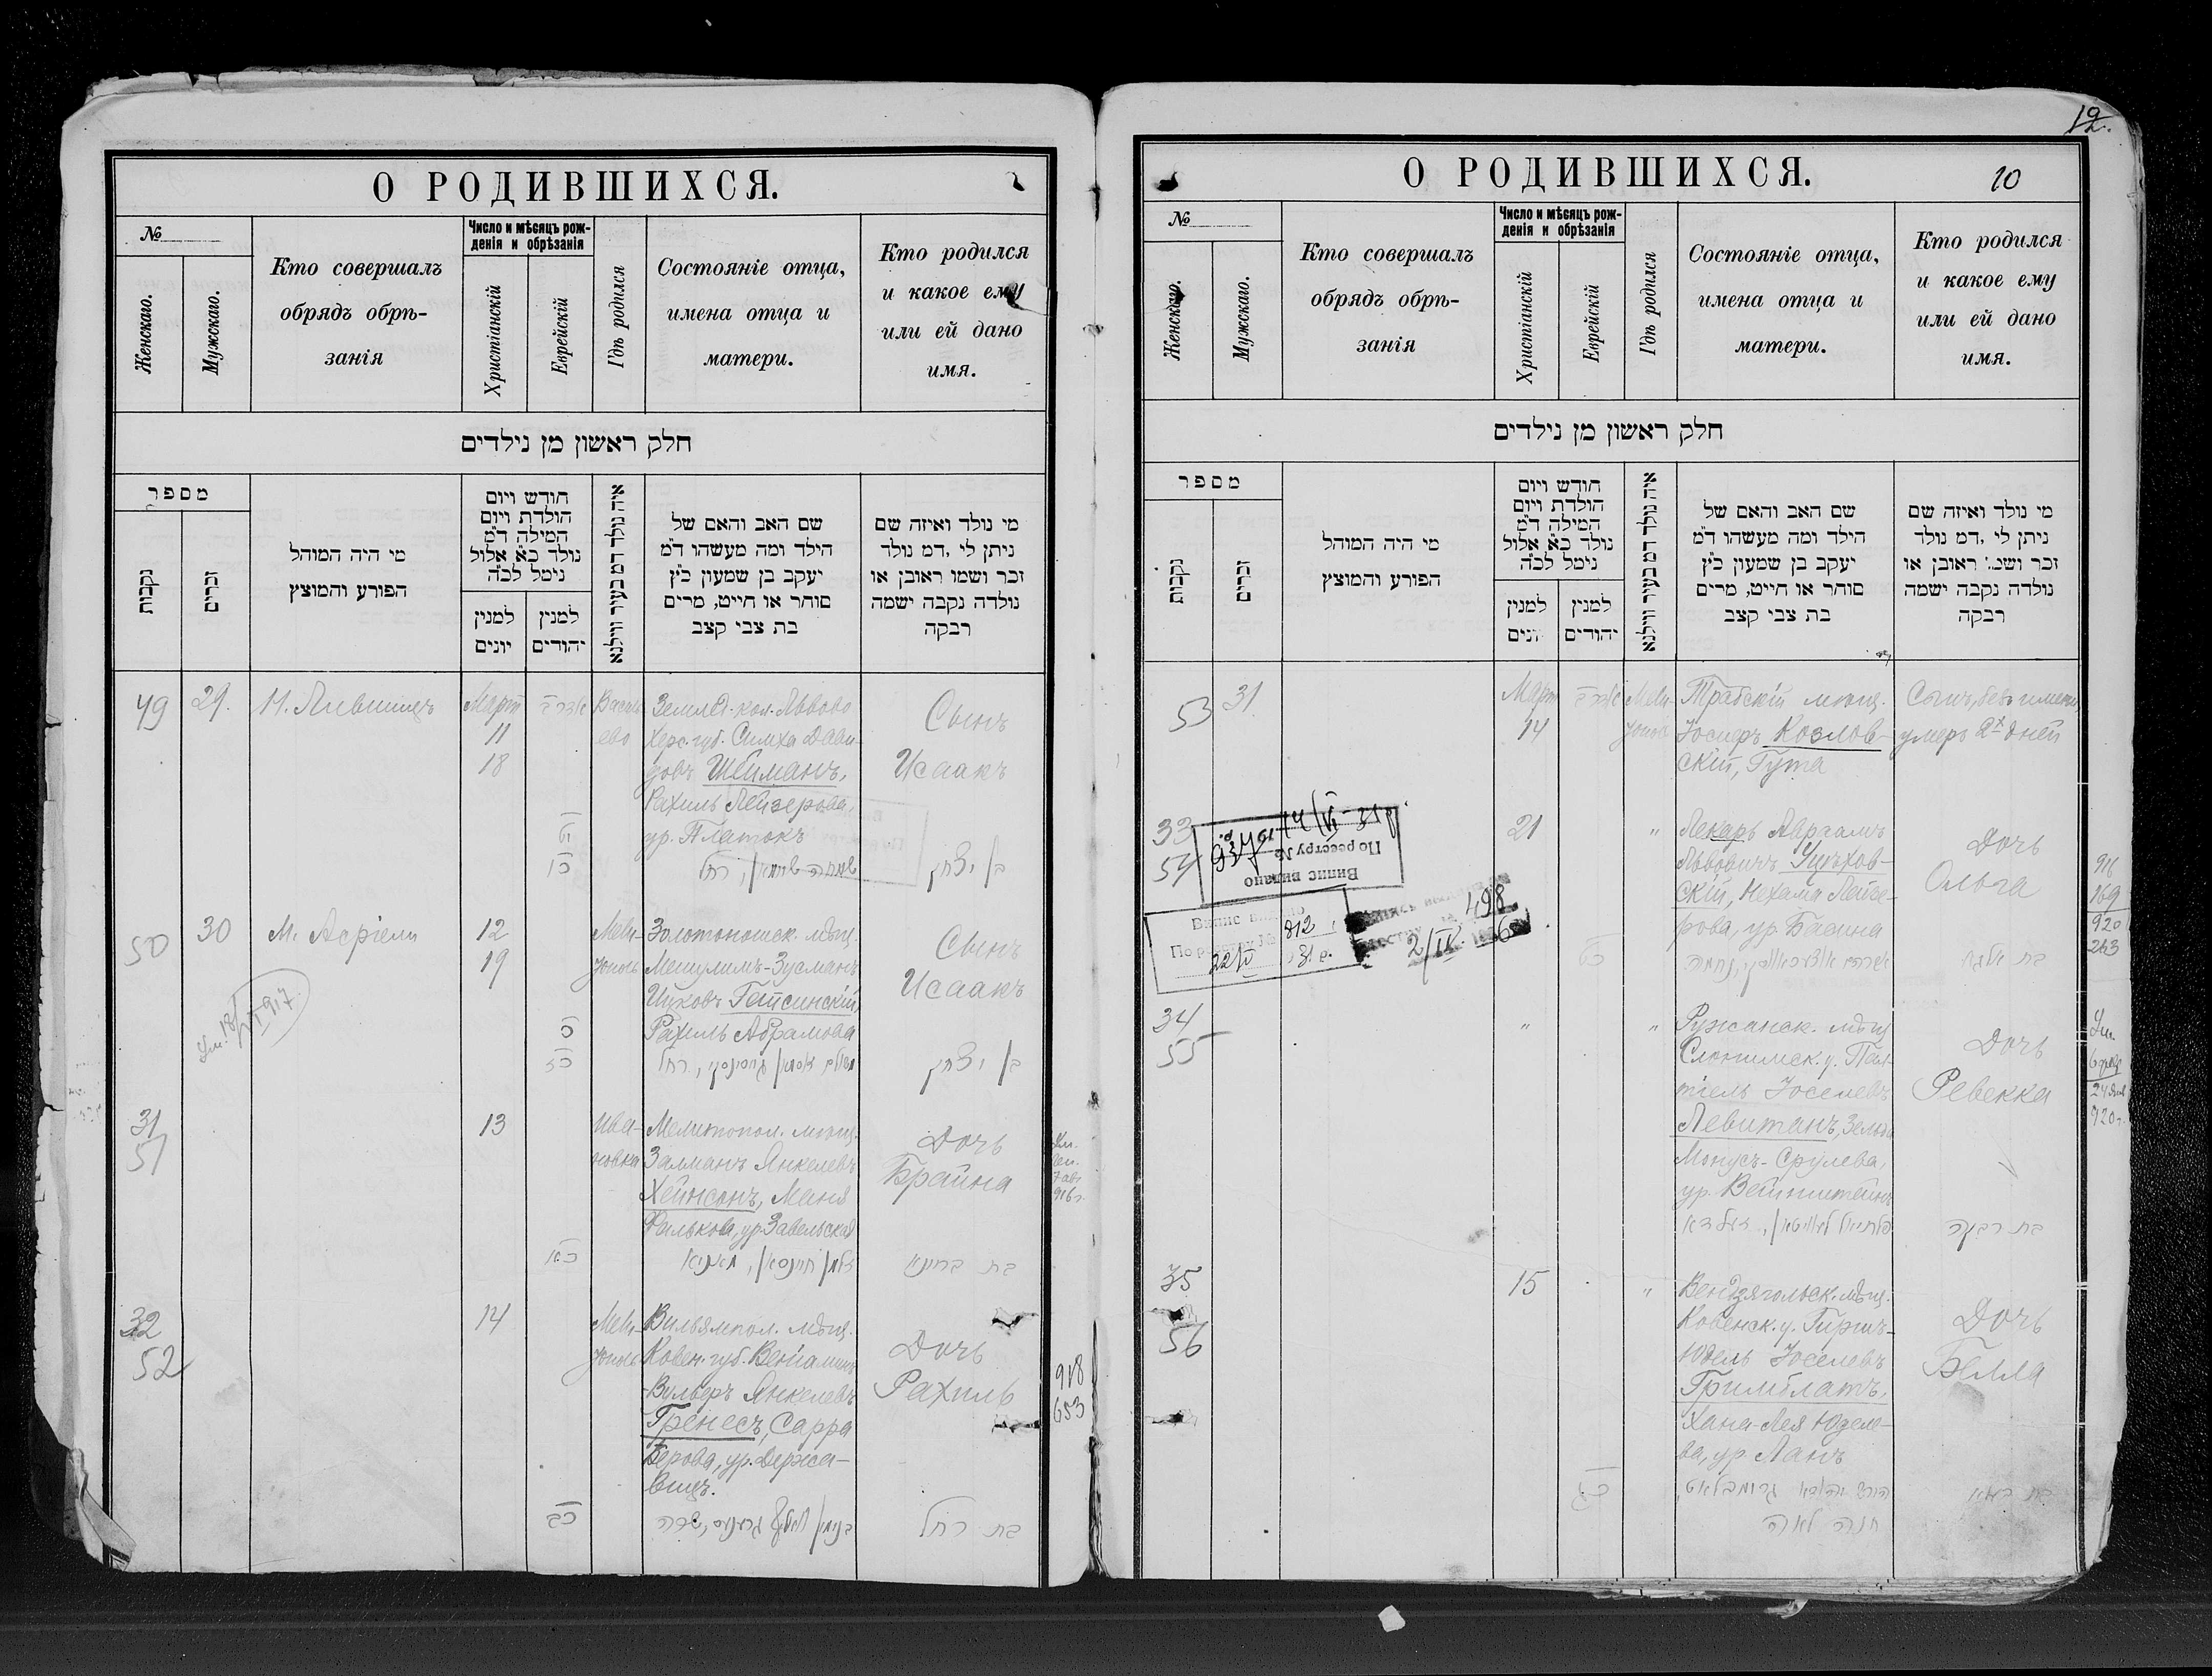 О РОДИВШИХСЯ.
№
Женскаго.
Мужскаго.
Кто совершалъ
обрядъ обрѣ-
занія
Число и мѣсяцъ рож-
денія и обрѣзанія
Христіанскій
Еврейскій
Гдѣ родился
Состояніе отца,
имена отца и
матери.
Кто родился
и какое ему
или ей дано
имя.
חלק ראשון מן נילדים
מספר
נקבות
זכרים
מי היה המוהל
הפורע והמוצץ
חודש ויום
הולדת ויום
המילה ד״מ
נולד כ״א אלול
נימל לכ״ה
למנין
יונים
למנין
יהודים
איה נולד דמ בעיר ווילנא
שם האב והאם של
הילד ומה מעשהו ד״מ
יעקב בן שמעון כ״ץ
סוחר או חייט, מרים
בת צבי קצב
מי נולד ואיזה שם
ניתן לי ,דמ נולד
זכר ושמו ראובן או
נולדה נקבה ישמה
רבקה
49
29.
Н. Лившицъ
Мартъ
11
18
Василь
ево
Землед. кол. Львово
Херс. губ. Симха Дави-
довъ Шейманъ,
Рахиль Лейзерова,
ур. Платокъ
Сынъ
Исаакъ
בן יצחק
50
30
М. Асріели
12
19
Мели-
тополь
Золотоношск. мѣщ.
Мешулимъ-Зусманъ
Рахиль Абрамова
Сынъ
Исаакъ
בן יצחק
31
51
13
Ива-
новка
Мелитопол. мѣщ.
Залманъ Янкелевъ
Хейнсонъ, Маня
Дочь
Брайна
בת בריינא
32
52
14
Мели-
тополь
Вильямпол. мѣщ.
Ковен. губ. Веніаминъ
-Вульфъ Янкелевъ
Гренесъ, Сарра
Берова, ур. Держа-
вецъ.
Дочь
Рахиль
בת רחל
918
653
12.
О РОДИВШИХСЯ.
10
№
Женскаго.
Мужскаго.
Кто совершалъ
обрядъ обрѣ-
занія
Число и мѣсяцъ рож-
денія и обрѣзанія
Христіанскій
Еврейскій
Гдѣ родился
Состояніе отца,
имена отца и
матери.
Кто родился
и какое ему
или ей дано
имя.
חלק ראשון מן נילדים
מספר
נקבות
זכרים
מי היה המוהל
הפורע והמוצץ
חודש ויום
הולדת ויום
המילה ד״מ
נולד כ״א אלול
נימל לכ״ה
למנין
יונים
למנין
יהודים
איה נולד דמ בעיר ווילנא
שם האב והאם של
הילד ומה מעשהו ד״מ
יעקב בן שמעון כ״ץ
סוחר או חייט, מרים
בת צבי קצב
מי נולד ואיזה שם
ניתן לי ,דמ נולד
זכר ושמ׳ ראובן או
נולדה נקבה ישמה
רבקה
53
31
Мартъ
14
Мели-
тополь
Трабскій мѣщ.
Козлов-
скій, Гута
Сынъ, безъ имени,
умеръ 2х дней
33
54
Випис видано
По реестру №
937
Випис видано
По реестру № 812
22/II 31 р.
498
2/IV
21
"
Лекарь Абрамъ
Львовичъ
скій, Нехама Лейзе-
рова, ур.
Дочь
Ольга
בת אלגה
916
169
920
263
34
55
"
"
Ружанск. мѣщ.
Слонимск. у. Пал-
тіель Іоселевъ
Левитанъ, Зелда
Монусъ-Срулева,
ур. Вейнштейнъ
Дочь
Ревекка
בת רבקה
920 г.
35
56
15
"
Вендзягольск. мѣщ.
Ковенск. у. Гиршъ-
Юдель Іоселевъ
Гримблатъ,
Хана-Лея Юделе-
ва, ур. Ланъ
Дочь
Бэлла
חנה לאה